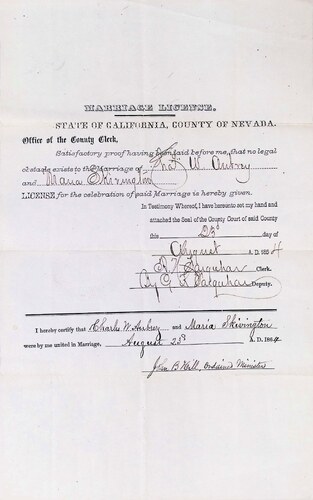 MARRIAGE LICENSE.
STATE OF CALIFORNIA, COUNTY OF NEVADA.
Office of the County Clerk,
Satisfactory proof having been laid before me, that no legal
obstacle exists to the Marriage of Chas W. Aubrey
and Maria Skivington
LICENSE for the celebration of said Marriage is hereby given.
In Testimony Whereof, I have hereunto set my hand and
attached the Seal of the County Court of said County
this 23d day of
August A. D. 1864
R. H. Farquhar Clerk.
By G. K. Farquhar Deputy.
I hereby certify that Charles W. Aubrey and Maria Skivington
were by me united in Marriage, August 23d A. D. 1864
John B. Hill, Ordained Minister